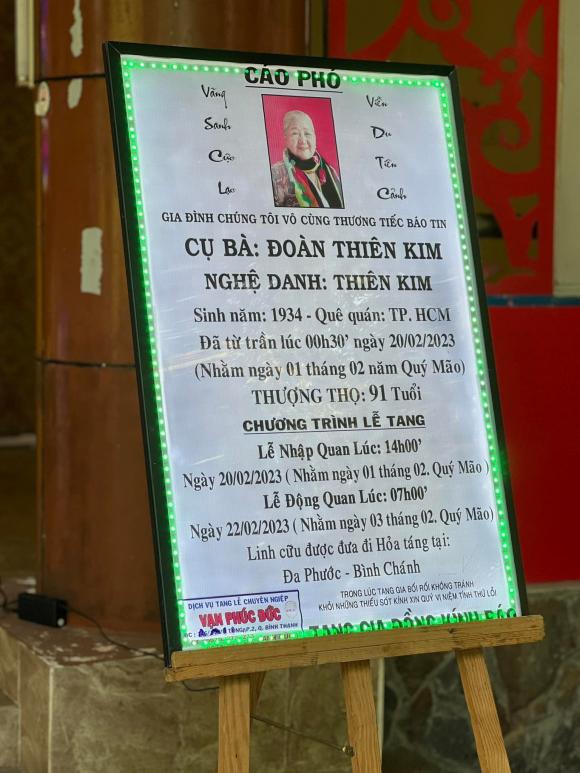 CÁO PHÓ
Vãng
Sanh
Cực
Lạc
Viễn
Du
Tiên
Cảnh
GIA ĐÌNH CHÚNG TÔI VÔ CÙNG THƯƠNG TIẾC BÁO TIN
CỤ BÀ: ĐOÀN THIÊN KIM
NGHỆ DANH: THIÊN KIM
Sinh năm: 1934 - Quê quán: TP. HCM
Đã từ trần lúc 00h30’ ngày 20/02/2023
(Nhằm ngày 01 tháng 02 năm Quý Mão)
THƯỢNG THỌ: 91 Tuổi
CHƯƠNG TRÌNH LỄ TANG
Lễ Nhập Quan Lúc: 14h00’
Ngày 20/02/2023 ( Nhằm ngày 01 tháng 02. Quý Mão )
Lễ Động Quan Lúc: 07h00’
Ngày 22/02/2023 ( Nhằm ngày 03 tháng 02. Quý Mão)
Linh cữu được đưa đi Hỏa táng tại:
Đa Phước - Bình Chánh
TRONG LÚC TANG GIA BỐI RỐI KHÔNG TRÁNH
KHỎI NHỮNG THIẾU SÓT KÍNH XIN QUÝ VỊ NIỆM TÌNH THỨ LỖI
TANG GIA ĐỒNG KÍNH BÁO
DỊCH VỤ TANG LỄ CHUYÊN NGHIỆP
VẠN PHÚC ĐỨC
P.2, Q. BÌNH THẠNH